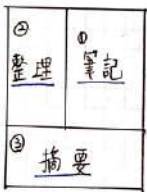 ②
整理
①
筆記
③
摘要